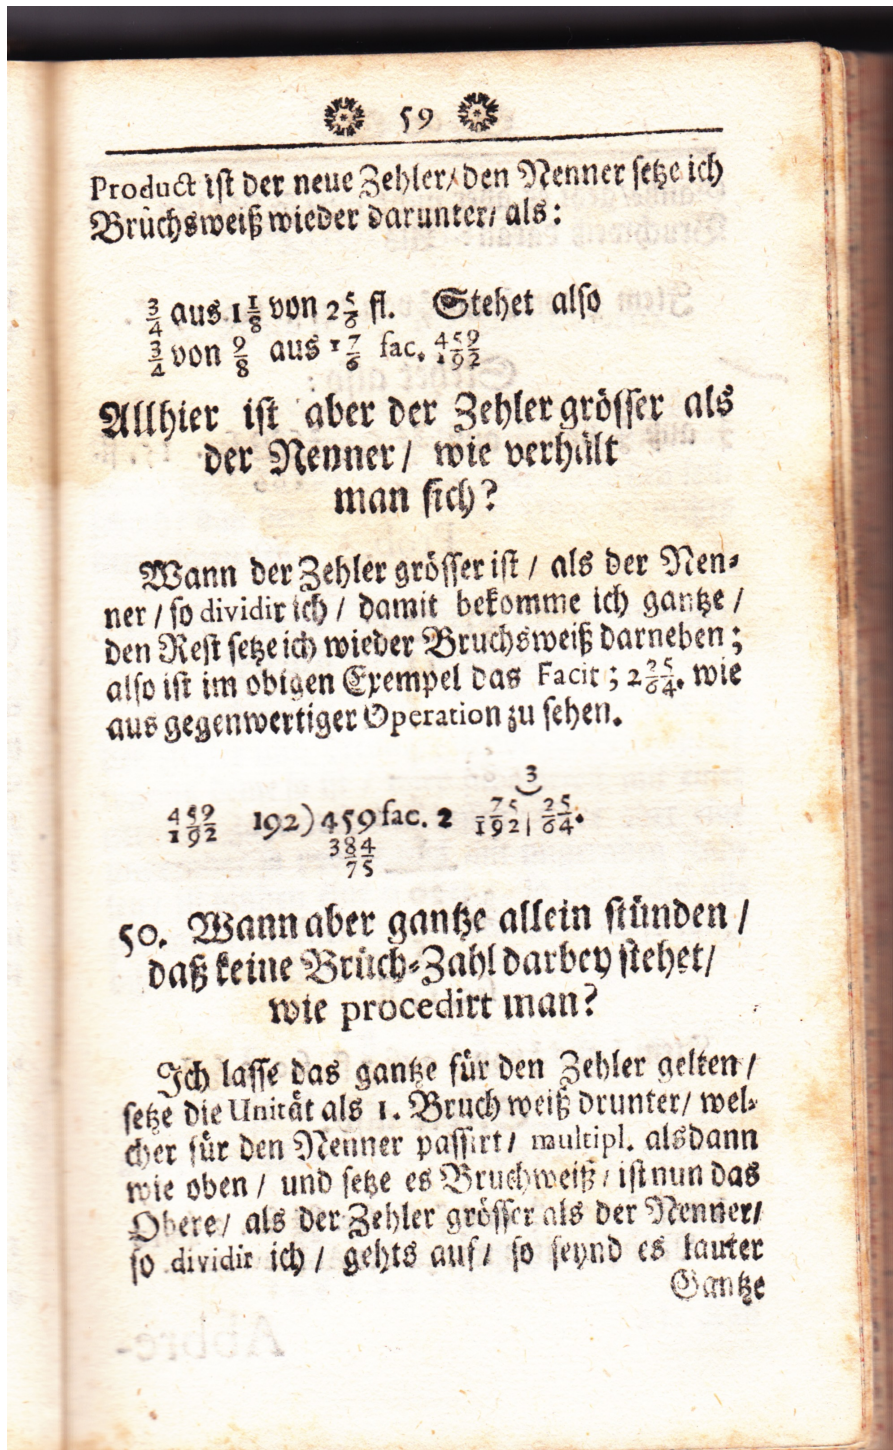 59
Product ist der neue Zehler/ den Nenner setze ich
Brüchsweiß wieder darunter/ als:
3/4 aus 1 1/8 von 2 5/6 fl. Stehet also
3/4 von 9/8 aus 17/6 fac. 459/192
Allhier ist aber der Zehler grösser als
der Nenner/ wie verhält
man sich?
Wann der Zehler grösser ist / als der Nen-
ner / so dividir ich / damit bekomme ich gantze /
den Rest setze ich wieder Bruchsweiß darneben;
also ist im obigen Exempel das Facit; 2 25/64. wie
aus gegenwertiger Operation zu sehen.
3
459/192 192) 459 fac. 2 75/192 | 25/64.
384
75
50. Wann aber gantze allein stünden /
daß keine Brüch-Zahl darbey stehet/
wie procedirt man?
Ich lasse das gantze für den Zehler gelten /
setze die Unität als 1. Bruch weiß drunter/ wel-
cher für den Nenner passirt / multipl. alsdann
wie oben / und setze es Bruchweiß / ist nun das
Obere / als der Zehler grösser als der Nenner/
so dividir ich / gehts auf / so seynd es lauter
Gantze